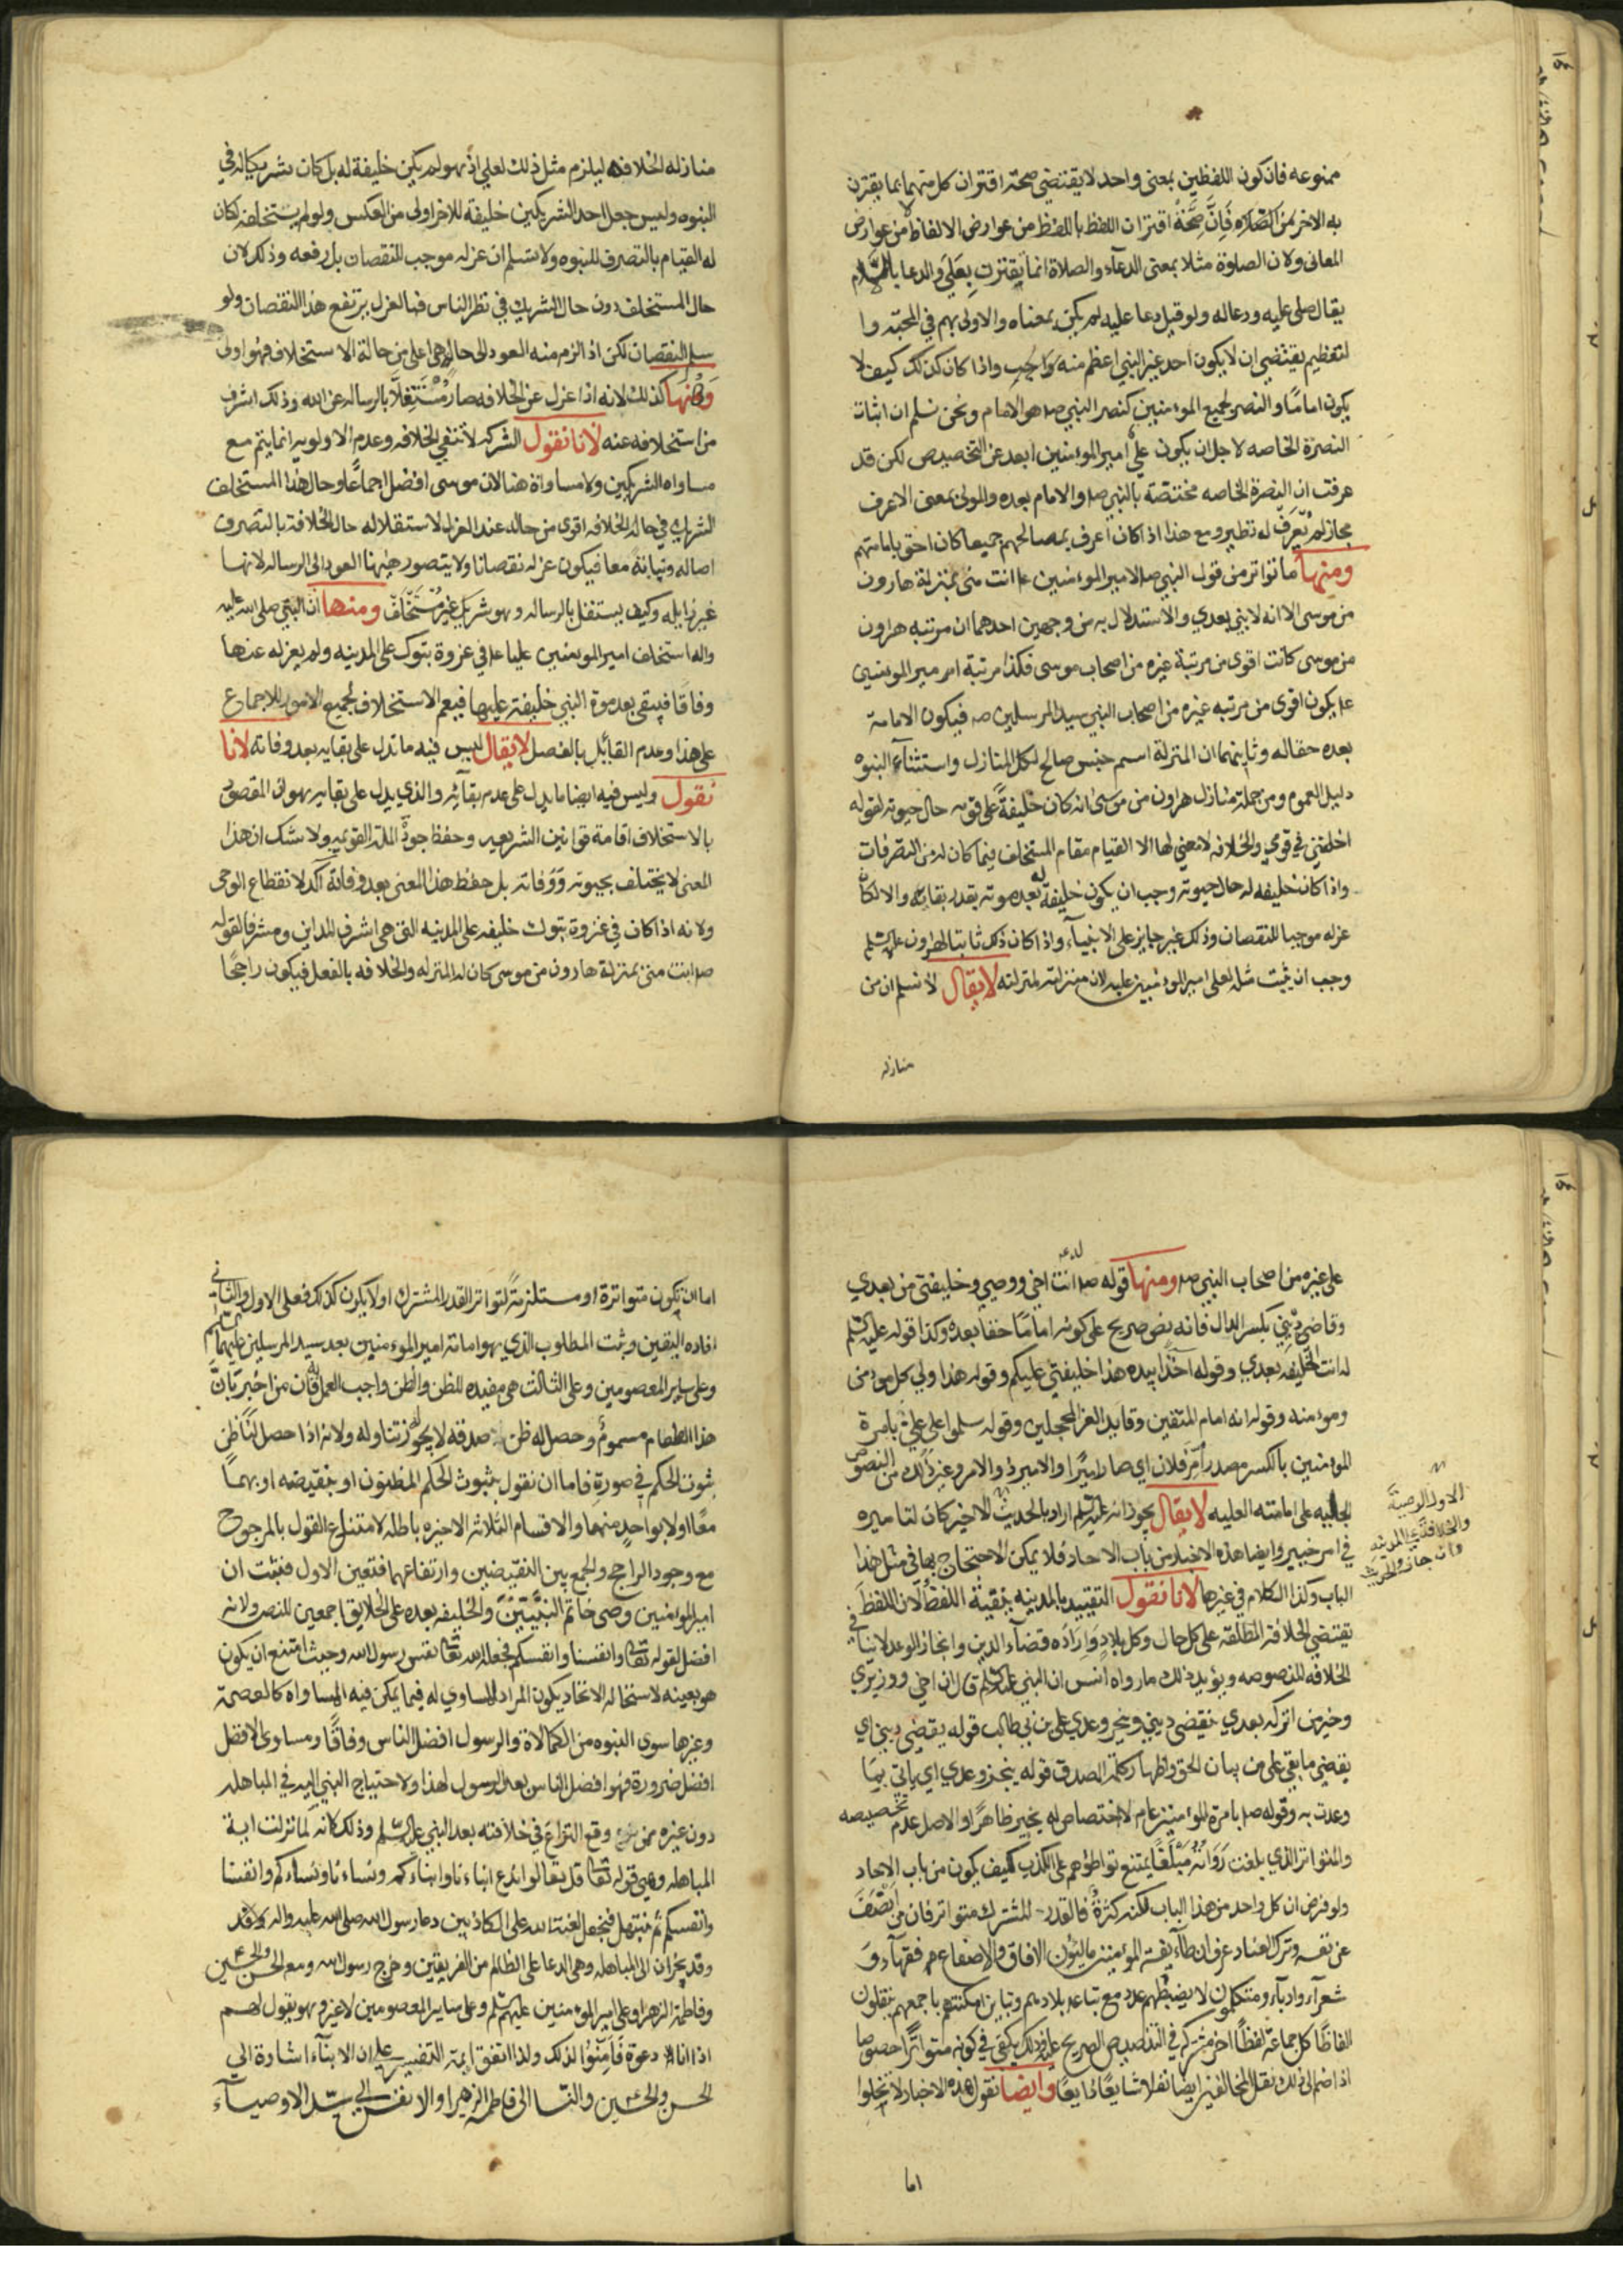 ممنوعه فان كون اللفظين بمعنى واحد لا يقتضي صحة اقتران كل منهما بما يقترن
به الاخر لان صحة اقتران اللفظ باللفظ من عوارض الالفاظ لا من عوارض
المعانى ولان الصلوة مثلا بمعنى الدعآء والصلاة انما يقترن بعلى والدعا باللام
يقال صلى عليه ودعا له ولو قيل دعا عليه لم يكن بمعناه والاولى بهم في المحبة وا
لتعظيم يقتضي ان لا يكون احد غير النبي اعظم منه واحب واذا كان كذلك كيف لا
يكون اماما والنصر لجميع الموءمنين كنصر النبي صه هو الامام ونحن نسلم ان اثبات
النصرة الخاصه لاجل ان يكون علي امير الموءمنين ابعد عن التخصيص لكن قد
عرفت ان النصرة الخاصه مختصة بالنبي صه والامام بعده والمولى بمعنى الاعرف
مجاز لم يعرف له نظير ومع هذا اذا كان اعرف بمصالحهم جميعا كان احق بامامتهم
ومنها ما تواتر من قول النبي صه لامير الموءمنين ع انت منى بمنزلة هارون
من موسى الا انه لا نبي بعدي والاستدلال به من وجهين احدهما ان مرتبه هرون
من موسى كانت اقوى من مرتبة غيره من اصحاب موسى فكذا مرتبة امير المومنين
ع يكون اقوى من مرتبه غيره من اصحاب النبي سيد المرسلين صه فيكون الامامة
بعده حقا له وثانيهما ان المنزلة اسم جنس صالح لكل المنازل واستثنآء النبوه
دليل العموم ومن جملة منازل هرون من موسى انه كان خليفة على قومه حال حيوته لقوله
اخلفني في قومي والخلافه لا معني لها الا القيام مقام المستخلف فيما كان له من التصرفات
واذا كان خليفه له حال حيوته وجب ان يكون خليفة له بعد موته بقدر بقائه والا لكان
عزله موجبا للنقصان وذلك غير جايز على الانبيآء واذا كان ذلك ثابتا لهرون عليه السلم
وجب ان يثبت مثله لعلى امير الموءمنين عليه لان منزلته كمنزلته لا يقال لا نسلم ان من
منازله
منازله الخلافه ليلزم مثل ذلك لعلي اذ هو لم يكن خليفة له بل كان شريكا له في
النبوه وليس جعل احد الشريكين خليفة للاخر اولى من العكس ولو لم يستخلفه لكان
له القيام بالتصرف للنبوه ولا نسلم ان عزله موجب للنقصان بل رفعه وذلك لان
حال المستخلف دون حال الشريك في نظر الناس فبالعزل يرتفع هذا النقصان ولو
سلم النقصان لكن اذا لزم منه العود الى حالة هى اعلى من حالة الاستخلاف فهو اولى
وهنا كذلك لانه اذا عزل عن الخلافه صار مستقلا بالرساله عن الله وذلك اشرف
من استخلافه عنه لانا نقول الشركه لا تنفي الخلافه وعدم الاولويه انما يتم مع
مساواه الشريكين ولا مساواة هنا لان موسى افضل اجماعا وحال هذا المستخلف
الشريك في حالة الخلافه اقوى من حاله عند العزل لاستقلاله حال الخلافة بالتصرف
اصالة ونيابة معا فيكون عزله نقصانا ولا يتصور هيهنا العود الى الرساله لانها
غير زايله وكيف يستقل بالرساله وهو شريك غير مستخلف ومنها ان النبي صلى الله عليه
واله استخلف امير المومنين عليا ع في غزوة تبوك على المدينه ولم يعزله عنها
وفاقا فيبقى بعد موة النبي خليفته عليها فيعم الاستخلاف لجميع الامور للاجماع
على هذا وعدم القايل بالفصل لا يقال ليس فيه ما تدل على بقايه بعد وفاته لانا
نقول وليس فيه ايضا ما يدل على عدم بقآئه والذي يدل على بقايه هو ان المقصود
بالاستخلاف اقامة قوانين الشريعه وحفظ حوذة الملة القويمه ولا شك ان هذا
المعنى لا يختلف بحيوته ووفاته بل حفظ هذا المعنى بعد وفاته آكد لانقطاع الوحى
ولانه اذا كان في غزوة تبوك خليفه على المدينه التى هى اشرف المداين ومشرفا لقوله
صه انت منى بمنزلة هارون من موسى كان له المنزله والخلافه بالفعل فيكون راجحا
على غيره من اصحاب النبي صه ومنها قوله صه انت اخي ووصي وخليفتي من بعدي
وقاضي ديني بكسر الدال فانه نص صريح على كونه اماما حقا بعده وكذا قوله عليه السلم
له انت الخليفه بعدي وقوله آخذا بيده هذا خليفتي عليكم وقوله هذا ولي كل مومن
وموءمنه وقوله انه امام المتقين وقايد الغر المحجلين وقوله سلموا على علي بامرة
الموءمنين بالكسر مصدر امر فلان اي صار اميرا والامير ذو الامر وغير ذلك من النصوص
الجاليه على امامته العليه لا يقال يجوز انه عليه السلم اراد بالحديث الاخير كان لتاميره
في امر خيبر وايضا هذه الاخبار من باب الاحاد فلا يمكن الاحتجاج بها فى مثل هذا
الباب وكذا الكلام في غيرها لانا نقول التقييد بالمدينه بنقية اللفظ لان اللفظ
يقتضي الخلافة المطلقه على كل حال وكل بلاد واراده قضآء الدين وانجاز الوعد لا ينافى
الخلافه المنصوصه ويؤيد ذلك ما رواه انس ان النبي عليه السلم قال ان اخي ووزيري
وخير من اتركه بعدي يقضي ديني وينجز وعدي علي بن ابي طالب قوله يقضي ديني اي
يقضي ما بقي علي من بيان الحق واظهار كلمة الصدق قوله ينجز وعدي اي ياتي بما
وعدت به وقوله صه بامرة الموءمنين عام لا اختصاص له بخيبر ظاهرا والاصل عدم تخصيصه
والمتواتر الذي بلغت رواته مبلغا يمتنع تواطؤهم على الكذب كيف يكون من باب الاحاد
ولو فرض ان كل واحد من هذا الباب لكنه كثرة فالقدر المشترك متواتر فان من انصف
عن نفسه وترك العناد عرف ان طآئفة الموءمنين ماليون الافاق والاصقاع مع فقهآء و
شعرآء وادبآء ومتكلمون لا يضبطهم عدد مع تباعد بلادهم وتباين امكنتهم باجمعهم ينقلون
الفاظا كل جماعة لفظا اخر مشترك في التنصيص الصريح عليه وذلك يكفى في كونه متواترا خصوصا
اذا ضم الى ذلك نقل المخالفين ايضا نقلا شايعا ذايعا وايضا نقول هذه الاخبار لا يخلوا
الاولى الوصية
اما
اما ان يكون متواترة او مستلزمة لتواتر القدر المشترك او لا يكون كذلك فعلى الاول والثانى
افاده اليقين وثبت المطلوب الذي هو امامة امير الموءمنين بعد سيد المرسلين عليهما السلم
وعلى ساير المعصومين وعلى الثالث هى مفيده للظن والظن واجب العمل فان من اخبر بان
هذا الطعام مسموم وحصل له ظن صدقه لا يجوز تناوله ولانه اذا حصل لنا ظن
ثبوت الحكم في صورة فاما ان نقول بثبوت الحكم المظنون او بنقيضه او بهما
معا او لا بواحد منهما والاقسام الثلاثه الاخيره باطله لامتناع القول بالمرجوح
مع وجود الراجح والجمع بين النقيضين وارتفاعهما فتعين الاول فثبت ان
امير الموءمنين وصى خاتم النبيين والخليفه بعده على الخلايق اجمعين للنصر ولانه
افضل لقوله تعالى وانفسنا وانفسكم فجعله الله تعالى نفس رسول الله وحيث امتنع ان يكون
هو بعينه لاستحالة الاتحاد يكون المراد المساوي له فيما يمكن فيه المساواه كالعصمة
وغيرها سوى النبوه من الكمالاة والرسول افضل الناس وفاقا ومساوى الافضل
افضل ضرورة فهو افضل الناس بعد الرسول لهذا ولاحتياج النبي اليه في المباهله
دون غيره ممن وقع النزاع في خلافته بعد النبي عليه السلم وذلك كانه لما نزلت اية
المباهله وهي قوله تعالى قل تعالوا ندع ابناءنا وابناءكم ونساءنا ونساءكم وانفسنا
وانفسكم ثم نبتهل فنجعل لعنة الله على الكاذبين دعا رسول الله صلى الله عليه واله وفد
وفد نجران الى المباهله وهى الدعا على الظالم من الفريقين وخرج رسول الله ومعه الحسن والحسين
وفاطمة الزهرا وعلى امير الموءمنين عليهم السلم وعلى ساير المعصومين لا غير وهو يقول لهم
اذا انا دعوة فامنوا لذلك ولذا اتفق ايمة التفسير على ان الابنآء اشارة الى
الحسن والحسين والنسا الى فاطمة الزهرا والانفس الى سيد الاوصيآء